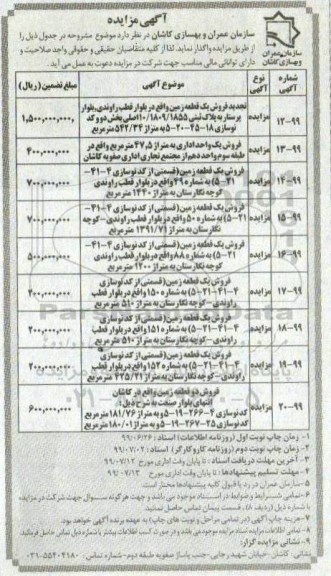 آگهی مزایده
سازمان عمران و بهسازی کاشان در نظر دارد موضوع مشروحه در جدول ذیل را
از طریق مزایده واگذار نماید. لذا از کلیه متقاضیان حقیقی و حقوقی واجد صلاحیت و
دارای توانائی مالی مناسب جهت شرکت در مزایده دعوت به عمل می آید.
سازمان عمران
و بهسازی کاشان
شماره آگهی نوع آگهی موضوع آگهی مبلغ تضمین (ریال)
۹۹-۱۲ مزایده تجدید فروش یک قطعه زمین واقع در بلوار قطب راوندی، بلوار
پرستار به پلاک ثبتی ۱۰/۱۸۰۹/۱۸۵۵ اصلی بخش دو و کد
نوسازی ۱۸-۴۵-۲۰-۵ به متراژ ۵۴۲/۳۴ مترمربع ۱,۵۰۰,۰۰۰,۰۰۰
۹۹-۱۳ مزایده فروش یک واحد اداری به متراژ ۴۷,۵ مترمربع واقع در
طبقه سوم واحد دهم از مجتمع تجاری اداری صفویه کاشان ۴۰۰,۰۰۰,۰۰۰
۹۹-۱۴ مزایده فروش یک قطعه زمین (قسمتی از کد نوسازی ۴-۴۱-
۲۱-۵) به شماره ۲۹ واقع در بلوار قطب راوندی
کوچه نگارستان به متراژ ۱۴۴۰ مترمربع ۷۰۰,۰۰۰,۰۰۰
۹۹-۱۵ مزایده فروش یک قطعه زمین (قسمتی از کد نوسازی ۴-۴۱-
۲۱-۵) به شماره ۵۰ واقع در بلوار قطب راوندی-کوچه
نگارستان به متراژ ۱۳۹۱/۷۱ مترمربع ۷۰۰,۰۰۰,۰۰۰
۹۹-۱۶ مزایده فروش یک قطعه زمین (قسمتی از کد نوسازی ۴-۴۱-
۲۱-۵) به شماره ۸۸ واقع در بلوار قطب راوندی
کوچه نگارستان به متراژ ۱۲۰۰ مترمربع ۵۰۰,۰۰۰,۰۰۰
۹۹-۱۷ مزایده فروش یک قطعه زمین (قسمتی از کد نوسازی
۴-۴۱-۲۱-۵) به شماره ۱۵۰ واقع در بلوار قطب
راوندی-کوچه نگارستان به متراژ ۵۱۰ مترمربع ۲۰۰,۰۰۰,۰۰۰
۹۹-۱۸ مزایده فروش یک قطعه زمین (قسمتی از کد نوسازی
۴-۴۱-۲۱-۵) به شماره ۱۵۱ واقع در بلوار قطب
راوندی-کوچه نگارستان به متراژ ۵۱۰ مترمربع ۲۰۰,۰۰۰,۰۰۰
۹۹-۱۹ مزایده فروش یک قطعه زمین (قسمتی از کد نوسازی
۴-۴۱-۲۱-۵) به شماره ۱۵۲ واقع در بلوار قطب
راوندی-کوچه نگارستان به متراژ ۴۲۵/۲۱ مترمربع
۹۹-۲۰ مزایده فروش دو قطعه زمین واقع در کاشان
انتهای بلوار صنعت به شرح ذیل:
کد نوسازی ۴-۲۶۶-۱۹-۵ و به متراژ ۱۸۱/۷۶ مترمربع
کد نوسازی ۲۵-۲۶۷-۱۹-۵ و به متراژ ۱۸۰/۰۱ مترمربع ۶۰۰,۰۰۰,۰۰۰
۱- زمان چاپ نوبت اول (روزنامه اطلاعات) اسناد: ۹۹/۰۶/۲۶
۲- زمان چاپ نوبت دوم (روزنامه کار و کارگر) اسناد: ۹۹/۰۷/۰۲
۳- آخرین مهلت دریافت اسناد: تا پایان وقت اداری مورخ ۹۹/۰۷/۱۲
۴- مهلت تسلیم پیشنهادها: تا پایان وقت اداری مورخ ۹۹/۰۷/۱۳
۵-سازمان عمران در رد یا قبول کلیه پیشنهادها مختار است
۶-تمامی شرایط و ضوابط در اسناد موجود می باشد و جهت هر گونه سوال جهت شرکت در مزایده
با شماره ذیل (ردیف ۸)، قسمت پیمان تماس حاصل نمایید.
۷-هزینه چاپ آگهی (در تمامی مراحل و نوبت های چاپ) به عهده برنده آگهی خواهد بود.
۹-نشانی مزایده گزار:
نشانی: کاشان-خیابان شهید رجایی-جنب پاساژ صفویه طبقه دوم-شماره تماس: ۵۵۴۰۴۱۸۰-۰۳۱